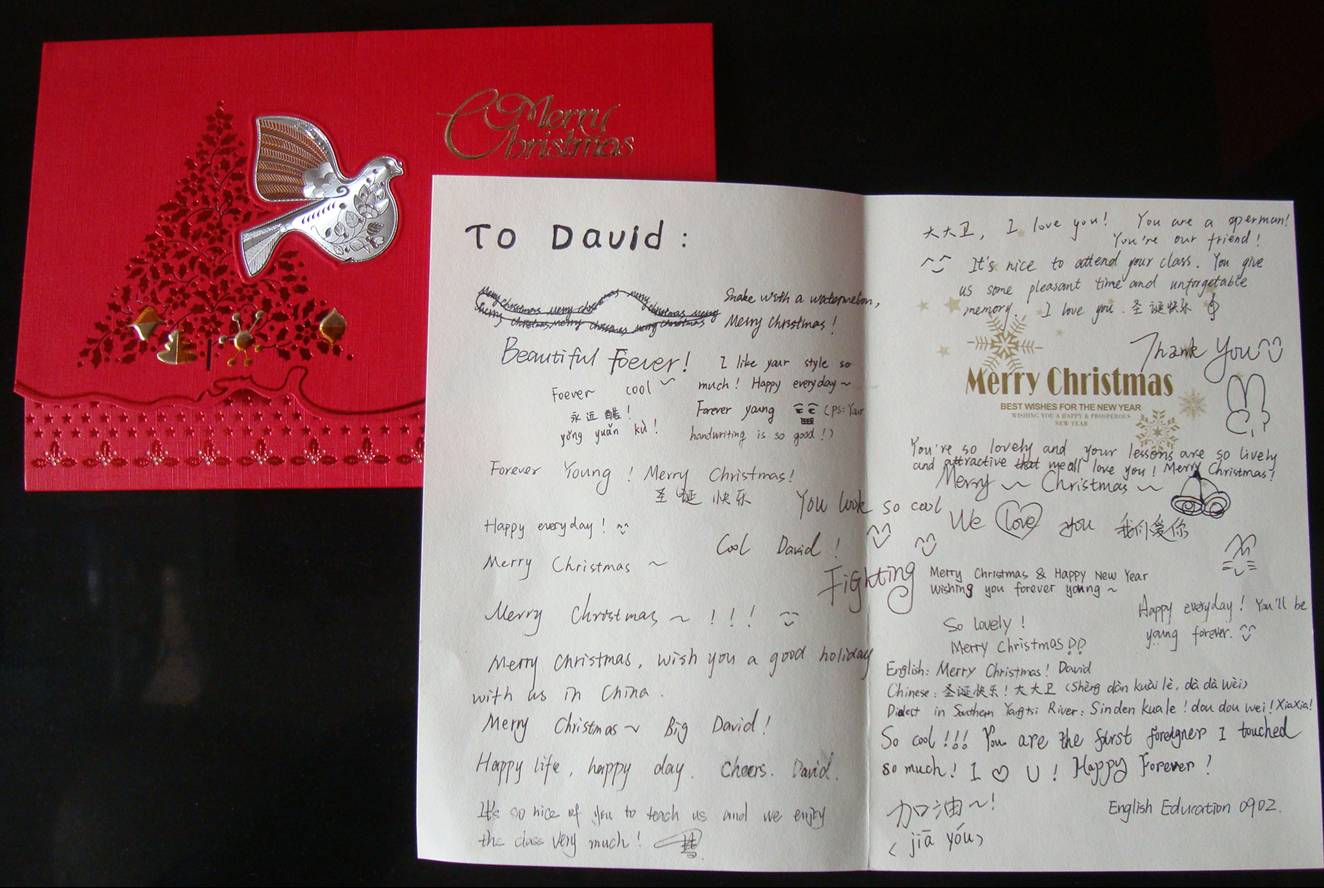 Merry
Christmas
To David :
Snake with a watermelon,
Merry Christmas!
Beautiful Foever!
I like your style so
much! Happy everyday~
Foever cool
永远酷!
yǒng yuǎn kù!
Forever young (ps: Your
handwriting is so good!)
Forever Young! Merry Christmas!
圣诞快乐
You look so cool
Happy everyday!
Cool David!
Merry Christmas ~
Fighting
Merry Christmas ~ !!!
Merry Christmas, wish you a good holiday
with us in China.
Merry Christmas~ Big David!
Happy life, happy day. Cheers. David.
It's so nice of you to teach us and we enjoy
the class very much!
大大卫, I love you! You are a sperman!
You're our friend!
It's nice to attend your class. You give
us some pleasant time and unforgetable
memory. I love you. 圣诞快乐
Thank You
Merry Christmas
BEST WISHES FOR THE NEW YEAR
WISHING YOU A HAPPY & PROSPEROUS
NEW YEAR
You're so lovely and your lessons are so lively
and attractive that we all love you! Merry Christmas!
Merry ~ Christmas ~
We love you 我们爱你
Merry Christmas & Happy New Year
wishing you forever young ~
Happy everyday! You'll be
young forever.
So lovely!
Merry Christmas
English: Merry Christmas! David
Chinese: 圣诞快乐! 大大卫 (Shèng dàn kuài lè, dà dà wèi)
Dialect in Southern Yangtsi River: Sinden kuale! dou dou wei! XiaXia!
So cool!!! You are the first foreigner I touched
so much! I ♡ U! Happy Forever!
加油~!
(jiā yóu)
English Education 0902.